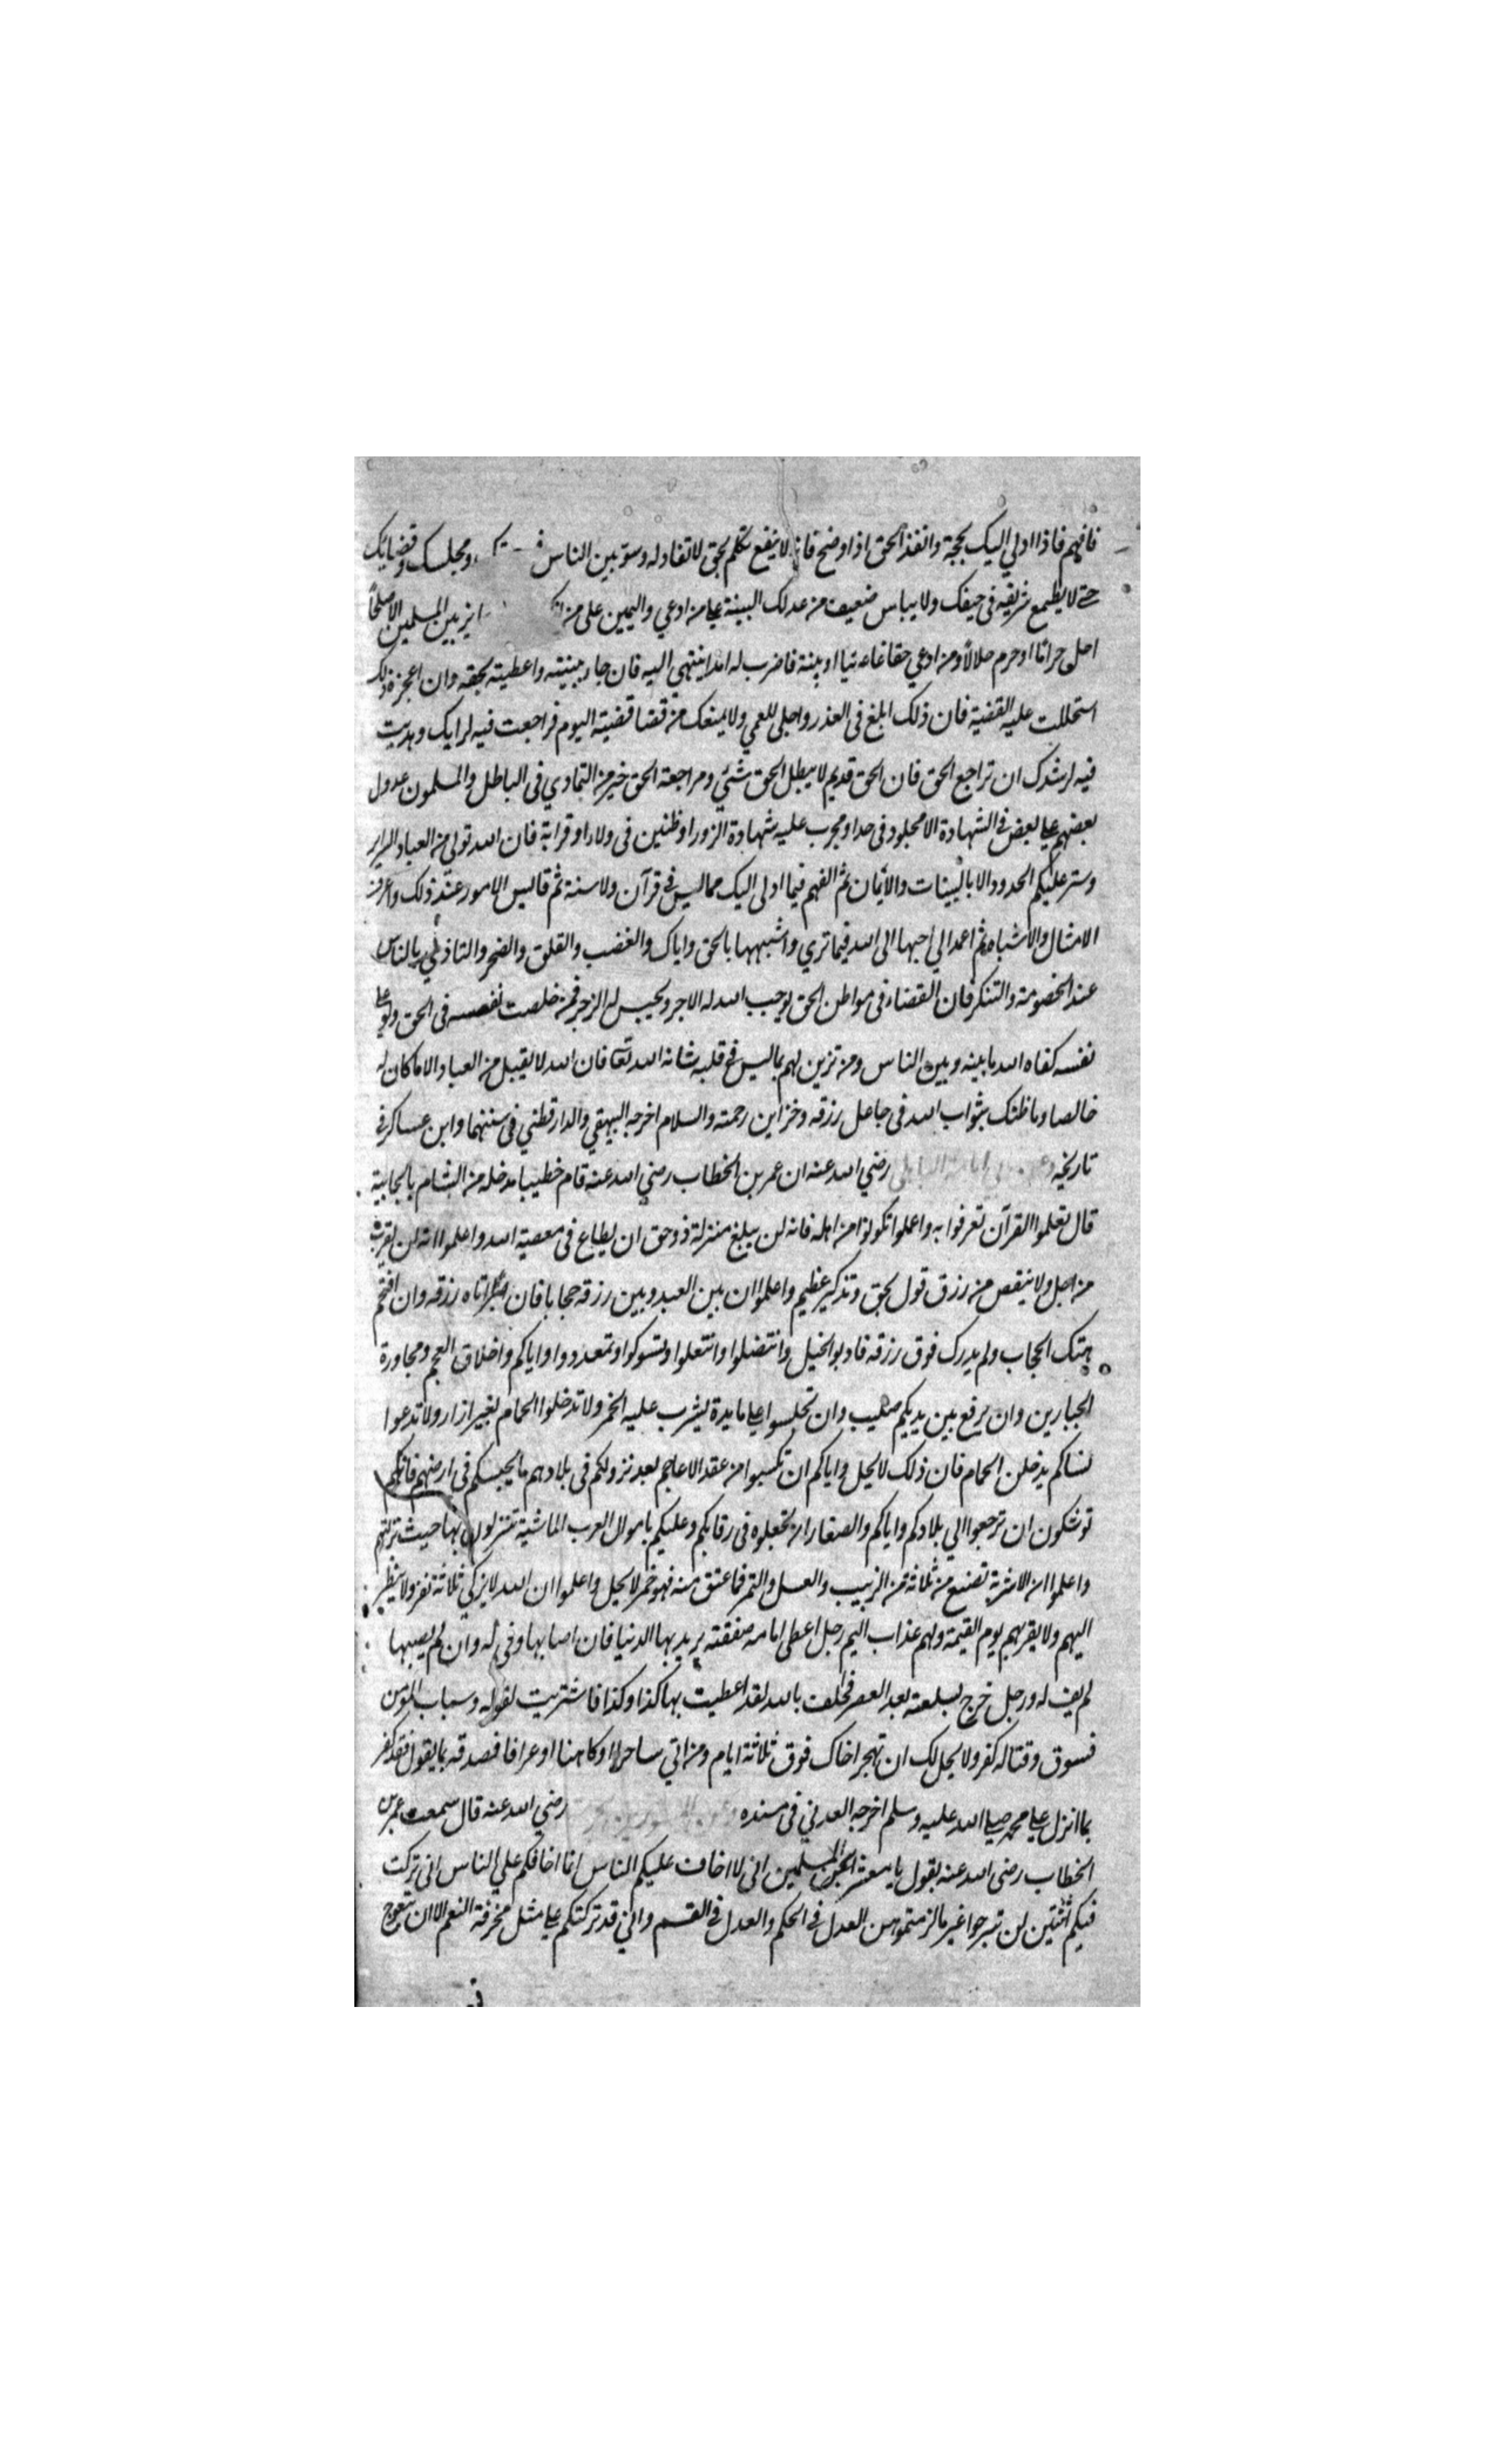 فافهم فاذا ادلي اليك بحجة وانفذ الحق اذا وضح فانه لا ينفع تكلم بحق لا نفاد له وسو بين الناس في ومجلسك وقضايك
حتى لا يطمع شريف في حيفك ولا يياس ضعيف من عدلك البينة على من ادعي واليمين على من انكر جايز بين المسلمين الا صلحا
احل حراما او حرم حلالا ومن ادعي حقا غايبا او بينة فاضرب له امدا ينتهى اليه فان جاء ببينته واعطيته بحقه وان اعجزه ذلك
استحللت عليه القضية فان ذلك ابلغ فى العذر واجلى للعمي ولا يمنعك من قضا قضيته اليوم فراجعت فيه لرايك وهديت
فيه لرشدك ان تراجع الحق فان الحق قديم لا يبطل الحق شئي ومراجعة الحق خير من التمادي فى الباطل والمسلمون عدول
بعضهم على بعض في الشهادة الا مجلود فى حد او مجرب عليه شهادة الزور او ظنين فى ولاء او قرابة فان الله تولي من العباد السراير
وستر عليكم الحدود الا بالبينات والايمان ثم الفهم فيما ادلى اليك مما ليس في قرآن ولا سنة ثم قايس الامور عند ذلك واعرف
الامثال والاشباه ثم اعمد الي احبها الى الله فيما تري واشبهها بالحق واياك والغضب والقلق والضجر والتاذي بالناس
عند الخصومة والتنكر فان القضاء فى مواطن الحق يوجب الله له الاجر ويحسن له الزجر فمن خلصت نفسه فى الحق ولو على
نفسه كفاه الله ما بينه وبين الناس ومن تزين لهم بما ليس في قلبه شانه الله تعا فان الله لا يقبل من العباد الا ما كان له
خالصا وما ظنك بثواب الله فى جاعل رزقه وخزاين رحمته والسلام اخرجه البيهقي والدارقطني فى سننهما وابن عساكر في
تاريخه وعن ابي امامة الباهلى رضي الله عنه ان عمر بن الخطاب رضي الله عنه قام خطيبا مدخله من الشام بالجابية
قال تعلموا القرآن تعرفوا به واعملوا تكونوا من اهله فانه لن يبلغ منزلة ذو حق ان يطاع فى معصية الله واعلموا انه لن يقرب
من اجل ولا ينقص من رزق قول بحق وتذكير عظيم واعلموا ان بين العبد وبين رزقه حجابا فان صبر اتاه رزقه وان اقتحم
هتك الحجاب ولم يدرك فوق رزقه فادبوا الخيل وانتضلوا وانتعلوا وتسوكوا وتمعددوا واياكم واخلاق العجم ومجاورة
الجبارين وان يرفع بين يديكم صليب وان تجلسوا على مايدة يشرب عليه الخمر ولا تدخلوا الحمام بغير ازار ولا تدعوا
نساكم يدخلن الحمام فان ذلك لا يحل واياكم ان تكسبوا من عقد الاعاجم بعد نزولكم فى بلادهم ما يحبسكم فى ارضهم فانكم
توشكون ان ترجعوا الي بلادكم واياكم والصغار ان تجعلوه فى رقابكم وعليكم باموال العرب الماشية تنزلون بها حيث نزلتم
واعلموا ان الاشربة تصنع من ثلاثة من الزبيب والعسل والتمر فما عتق منه فهو خمر لا يحل واعلموا ان الله لا يزكي ثلاثة نفر ولا ينظر
اليهم ولا يقربهم يوم القيمة ولهم عذاب اليم رجل اعطى امامه صفقته يريد بها الدنيا فان اصابها وفى له وان لم يصبها
لم يف له ورجل خرج بسلعته بعد العصر فحلف بالله لقد اعطيت بها كذا وكذا فاشتريت لقوله وسباب المؤمن
فسوق وقتاله كفر ولا يحل لك ان تهجر اخاك فوق ثلاثة ايام ومن اتي ساحرا او كاهنا او عرافا فصدقه بما يقول فقد كفر
بما انزل على محمد صلى الله عليه وسلم اخرجه العدني فى مسنده وعن المسور بن مخرمة رضي الله عنه قال سمعت عمر بن
الخطاب رضى الله عنه يقول يا معشر المسلمين انى لا اخاف عليكم الناس انما اخافكم علي الناس انى تركت
فيكم اثنتين لن تبرحوا غير ما لزمتموهن العدل في الحكم والعدل في القسم واني قد تركتكم على مثل مخرفة النعم الا ان يتعوج